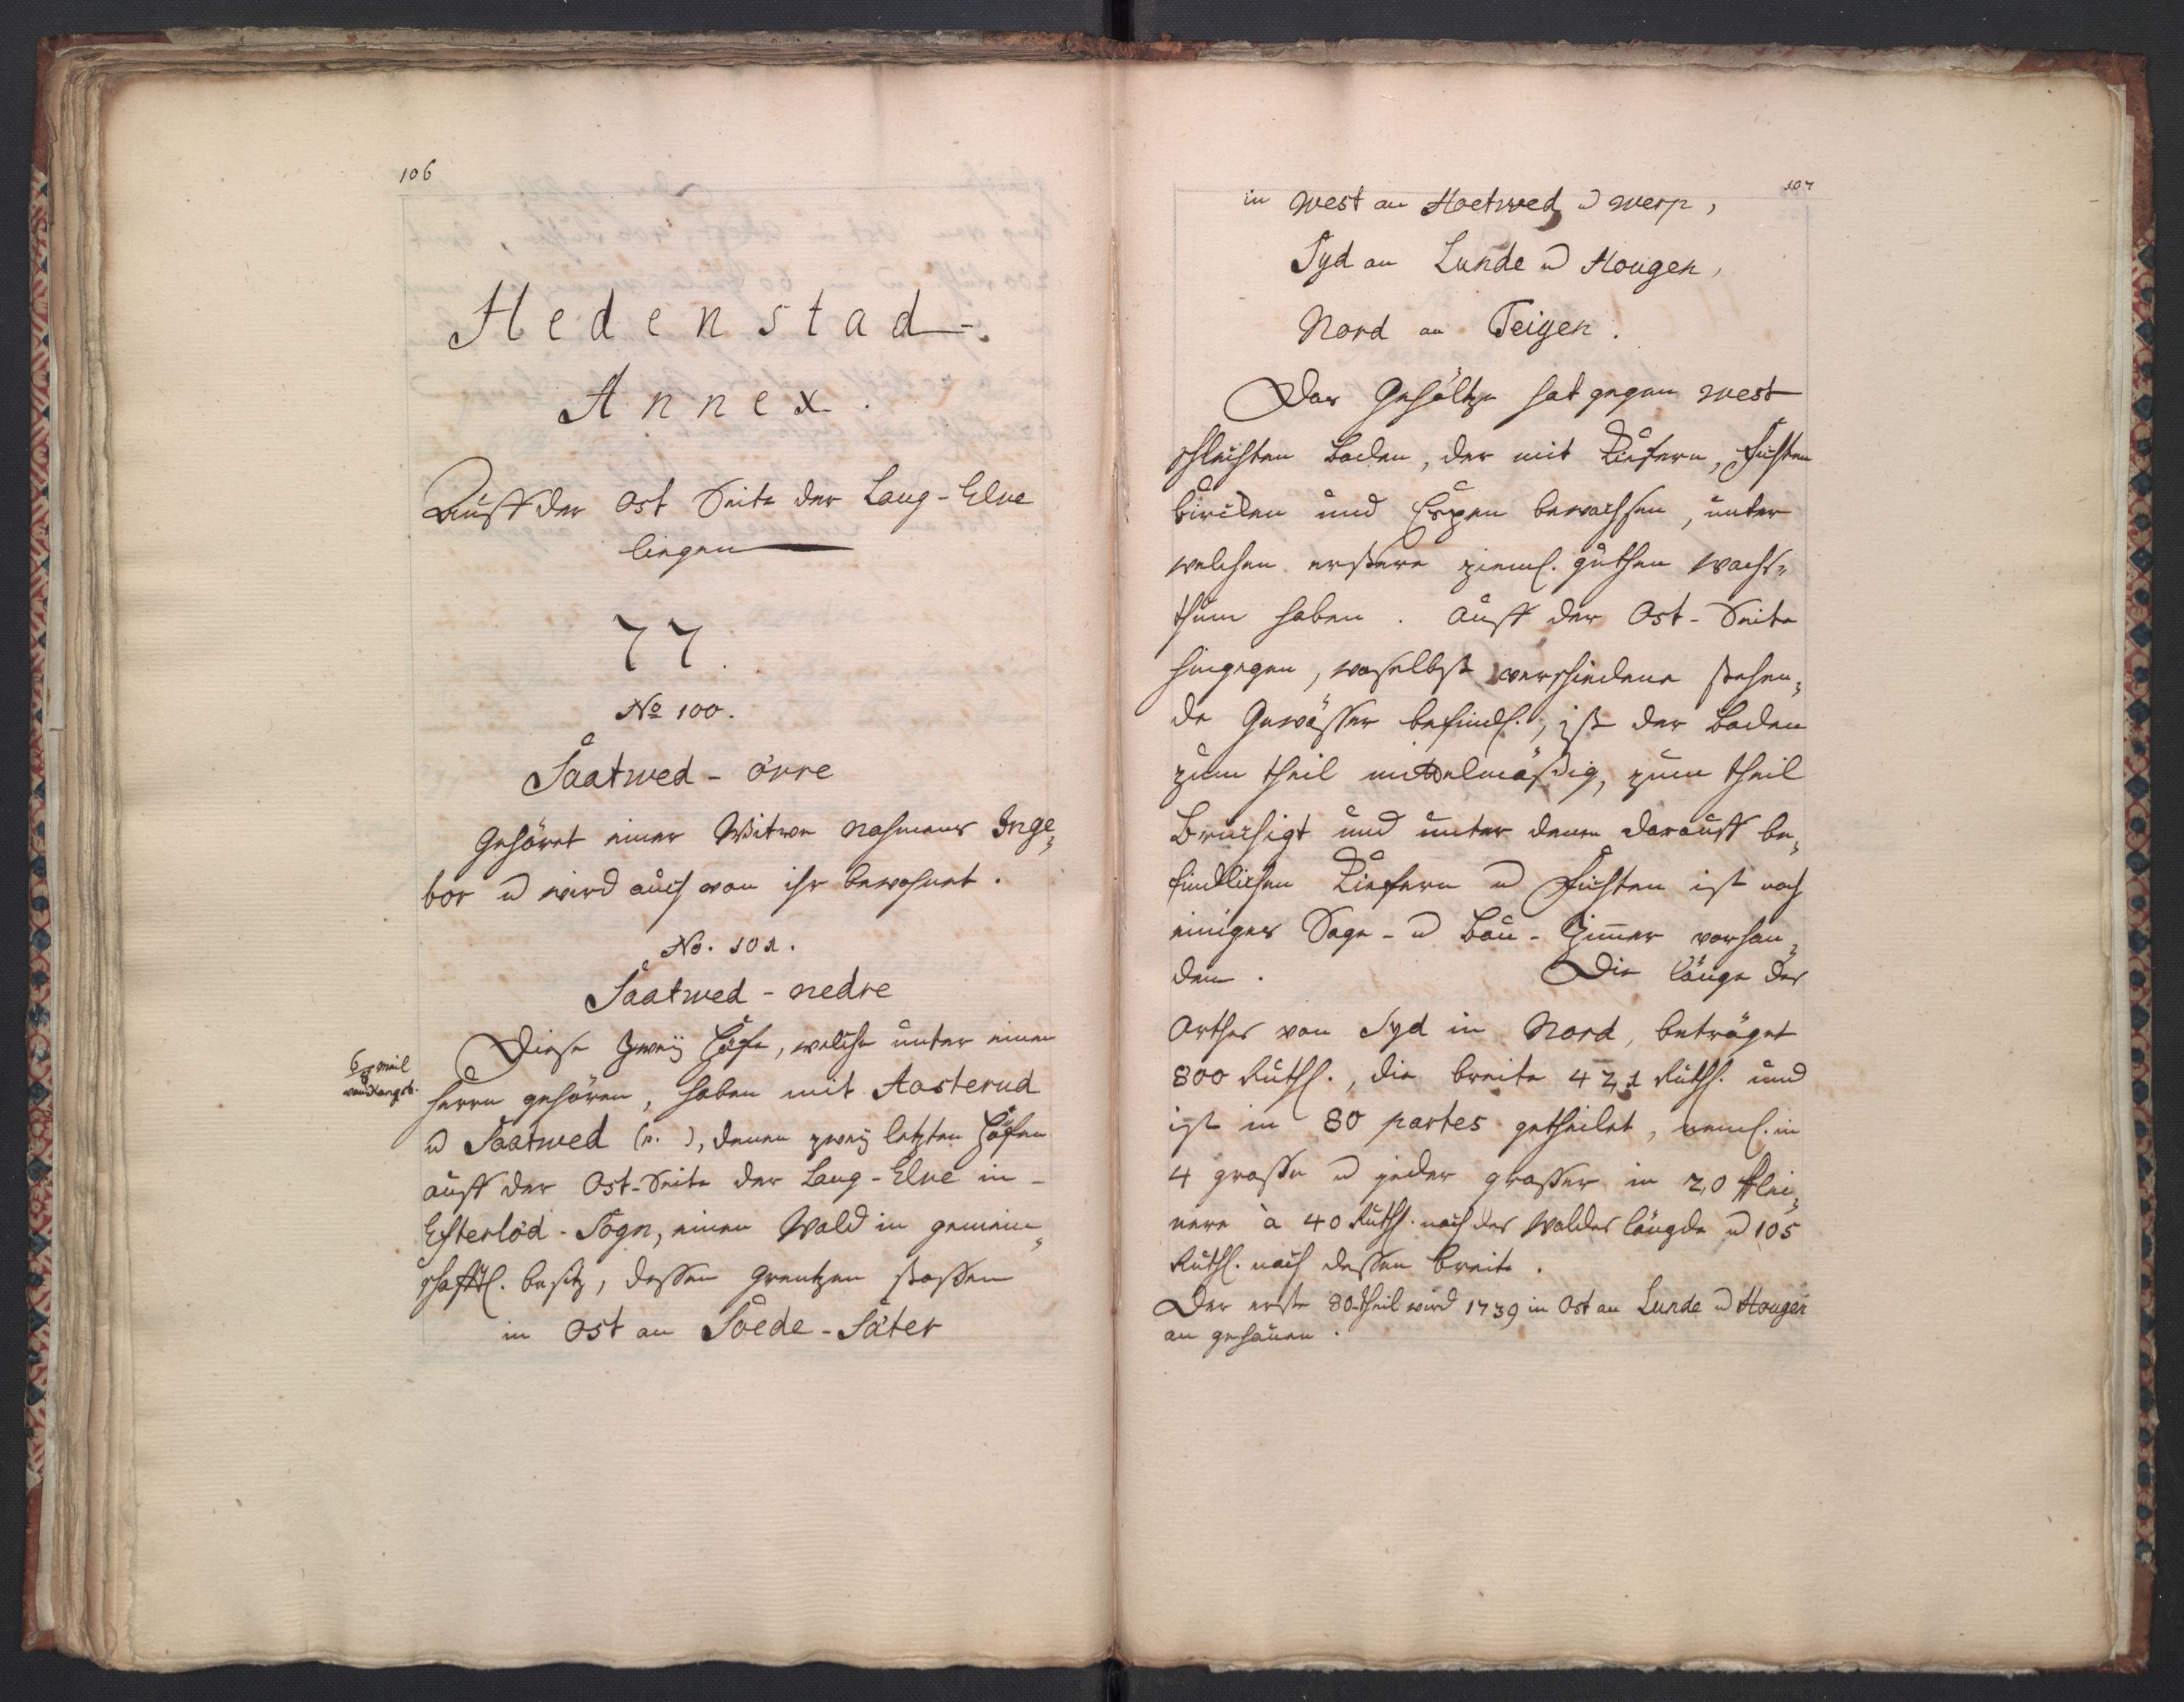 106
Hedenstad-
Annex.
Auff der Ost Seite der Laug-Elve
liegen
77.
No 100.
Saatwed - övre
Gehöret einer Witwe nahmens Inge„
bor u wird auch von ihr bewohnet.
No. 101.
Saatwed - nedre
Diese Zweÿ Höfe, welche unter einen
6/8 meil
von Kongsb.
Herrn gehören, haben mit Aasterud
u Saatwed (n. ), denen zweÿ letzten Höfen
auff der Ost-Seite der Laug-Elve in
Efterlöd-Sogn, einen Wald in gemein„
schafftl. besitz, dessen Grentzen stossen
in Ost an Soede-Säter
107
in West an Hoetwed u Werp,
Syd an Lunde u Hougen,
Nord an Teigen.
Das Gehöltze hat gegen West
schlechten Boden, der mit Kiefern, Fichten
Bircken und Espen bewachsen, unter
welchen erstere zieml. guthen Wachs„
thum haben. Auff der Ost-Seite
hingegen, woselbst verschiedene stehen„
de Gewässer befindl., ist der Boden
zum theil mittelmässig, zum theil
Bruchigt und unter denen darauff be„
findlichen Kiefern u Fichten ist noch
einiges Sage- u Bau-Zimer vorhan„
den. Die länge des
Orthes von Syd in Nord, beträget
800 Ruthl., die breite 421 Ruthl. und
ist in 80 partes getheilet, neml. in
4 grosse u jeder grosser in 20 klei„
nere à 40 Ruthl. nach des Waldes längde u 105
Ruthl. nach dessen breite.
Der erste 80-theil wird 1739 in Ost an Lunde u Hougen
an gehauen.